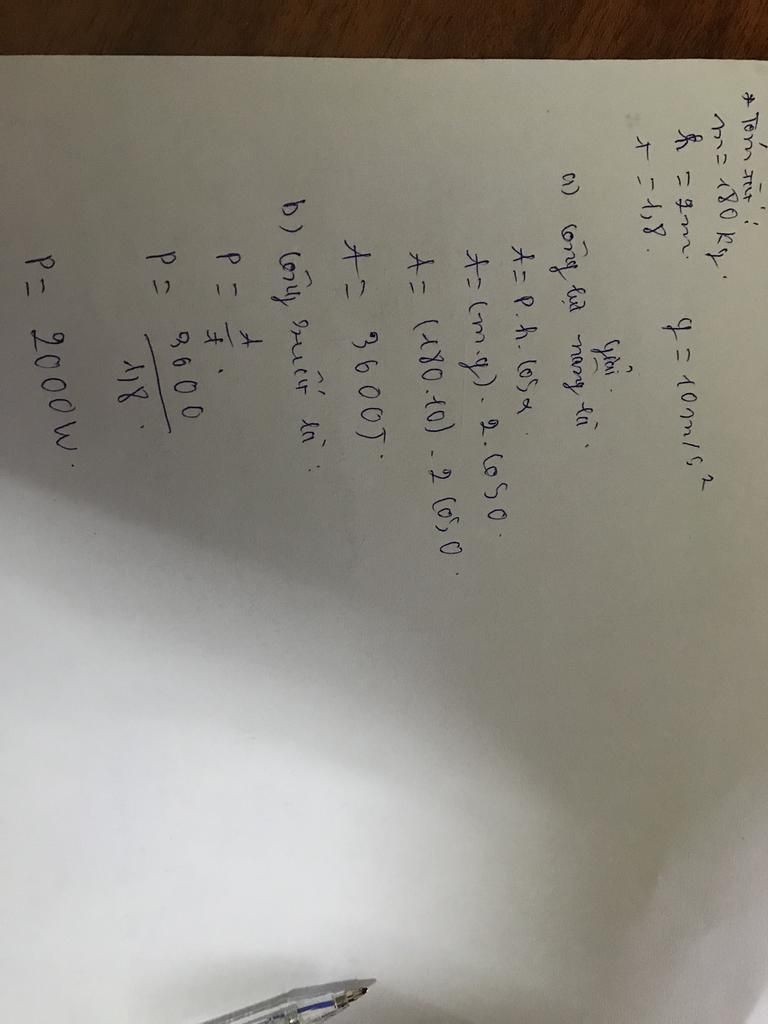 * Tóm tắt:
m = 180 kg.
h = 2m. g = 10m/s²
t = 1,8.
Giải.
a) Công lực nâng là.
A = P.h.cosα.
A = (m.g).2.cos0.
A = (180.10).2 cos0.
A = 3600J.
b) Công suất là:
P = A/t.
P = 3600/1,8.
P = 2000W.